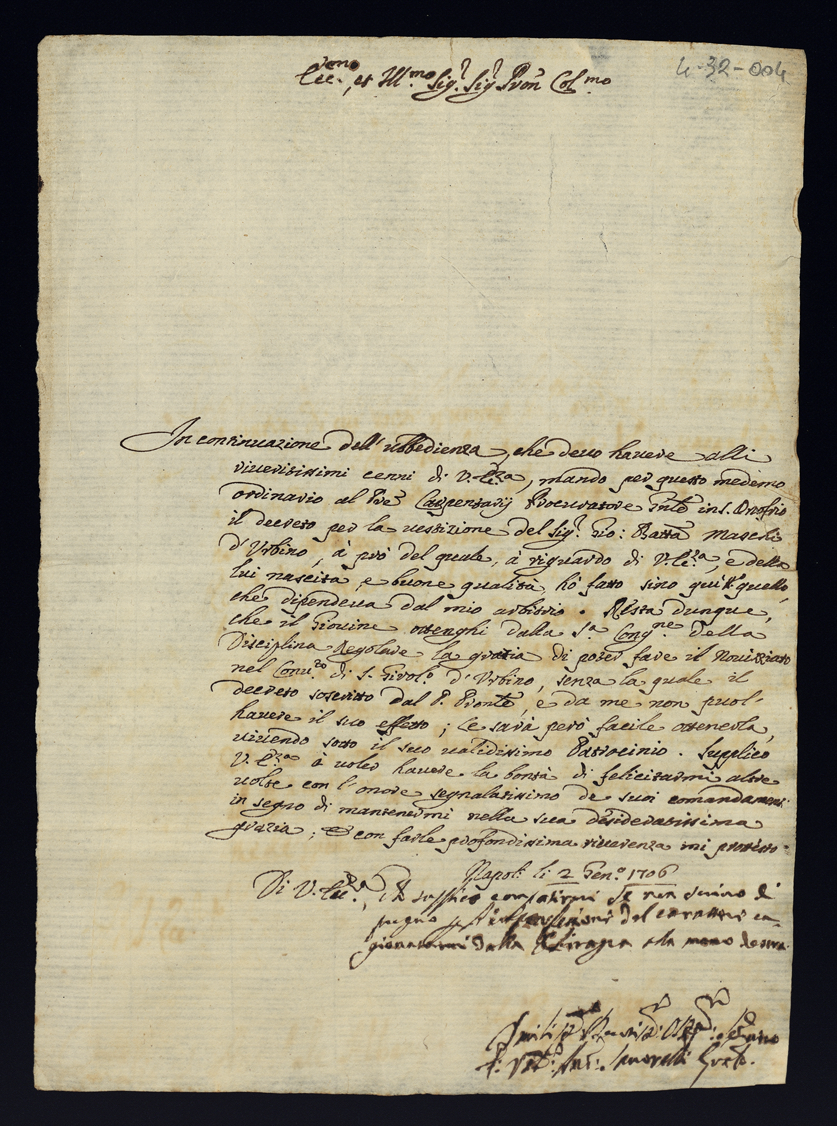 4-32-004
Ecc.mo, et Ill.mo Sig.r Sig.r Pron Col.mo
In continuazione dell'ubbedienza, che devo havere alli
riveritissimi cenni di V. Ecc.za, mando per questo medemo
ordinario al Pre Carpensarij Procuratore Gnle in S. Onofrio
il decreto per la vestizione del Sig.r Gio: Batta Maschi
d'Urbino, à prò del quale, à riguardo di V. Ecc.za, e della
lui nascita, e buone qualità, hò fatto sino qui quello,
che dipendeva dal mio arbitrio. Resta dunque,
che il Giovine ottenghi dalla S.a Cong.ne della
Disciplina Regolare la grazia di poter fare il Novizziato
nel Conv.to di S. Girol.o d'Urbino, senza la quale il
decreto soscritto dal P. e da me non puol'
havere il suo effetto; Le sarà però facile ottenerla,
vivendo sotto il suo validissimo Patrocinio. Supplico
V. Ecc.za à voler havere la bontà di felicitarmi altre
volte con l'onore segnalatissimo de suoi comandamenti
in segno di mantenermi nella sua desideratissima
grazia; e con farle profondissima riverenza mi protesto.
Napoli li 2 Gen.o 1706
Di V. Ecc.za, supplico compatirmi se non scrivo di
pugno del carattere ca
gionatami dalla Chiragra alla mano destra.